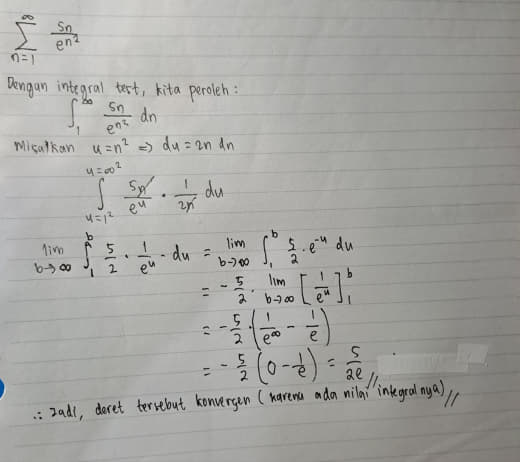 ∞
∑ 5n/e^{n²}
n=1
Dengan integral test, kita peroleh :
∫₁^∞ 5n/e^{n²} dn
Misalkan u = n² ⇒ du = 2n dn
u=∞²
∫ 5n/e^u · 1/2n du
u=1²
lim b→∞ ∫₁^b 5/2 · 1/e^u · du = lim b→∞ ∫₁^b 5/2 · e^{-u} du
= - 5/2 · lim b→∞ [1/e^u]₁^b
= - 5/2 · (1/e^∞ - 1/e)
= - 5/2 (0 - 1/e) = 5/2e //
∴ Jadi, deret tersebut konvergen (karena ada nilai integralnya) //